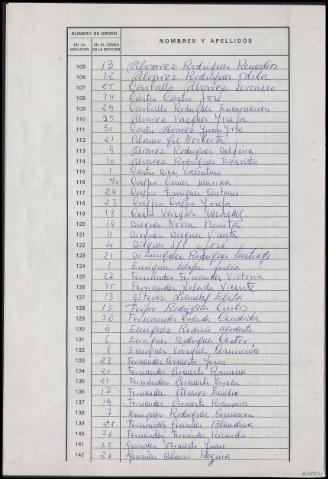 NUMERO DE ORDEN
NOMBRES Y APELLIDOS
EN LA VOTACION
EN EL CENSO DE LA SECCION
105 13 Alvarez Rodriguez Remedios
106 12 Alvarez Rodriguez Odila
107 25 Carballo Alvarez
108 74 Castro Castro José
109 29 Carballo Rodriguez Encarnacion
110 25 Alvarez Vazquez Josefa
111 30 Castro Alvarez Juan José
112 21 Blanco Gil Norberto
113 9 Alvarez Rodriguez Delfina
114 10 Alvarez Rodriguez Evaristo
115 1 Castro Valentina
116 30 Crespo Gomez Marina
117 24 Crespo Enriquez Antonio
118 23 Crespo Crespo Josefa
119 18 Castro Vazquez Mercedes
120 14 Dieguez Novoa Benita
121 11 Dieguez Dieguez Vicenta
122 4 Dieguez José
123 21 Dominguez Rodriguez Santiago
124 1 Enriquez Julia
125 27 Fernandez Fernandez Victoria
126 35 Fernandez Losada Vicente
127 13 Estevez
128 15 Feijoo Rodriguez Carlos
129 28 Fernandez Losada Claudida
130 4 Enriquez Modesto
131 6 Enriquez Rodriguez Castor
132 8 Enriquez Vazquez Asuncion
133 23 Fernandez Armesto
134 20 Fernandez Armesto Ramona
135 21 Fernandez Armesto
136 17 Fernandez Alvarez Emilio
137 19 Fernandez Armesto Ramona
138 7 Enriquez Rodriguez
139 28 Fernandez Gonzalez Blandina
140 26 Fernandez Fernandez Ricardo
141 25 Gonzalez Armesto Juan
142 26 Gonzalez Blanco Regina
AHPOu